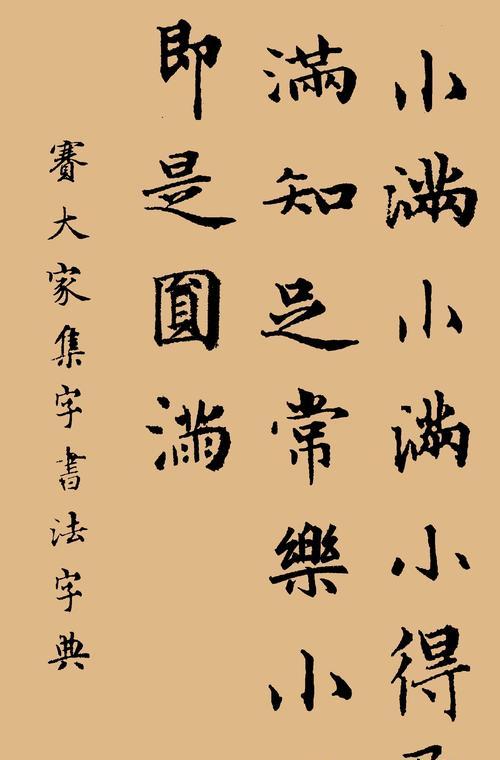 小滿小滿小得
滿知足常樂小
即是圓滿
賽大家集字書法字典